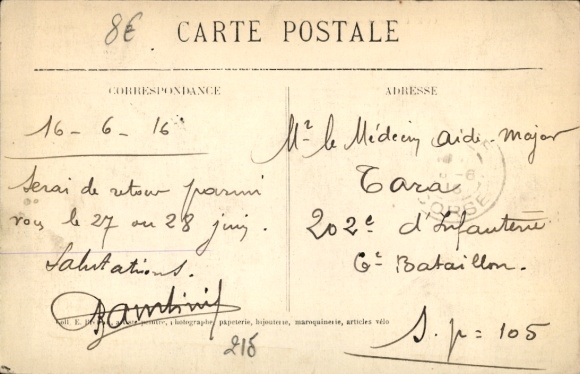 8€
CARTE POSTALE
CORRESPONDANCE
ADRESSE
16-6-16
Serai de retour parmi
vous le 27 ou 28 juin.
Salutations.
Mr le Médecin aide-major
Tara
202e d'Infanterie
6e Bataillon.
S.p= 105
Coll. E. peintre, photographe, papeterie, bijouterie, maroquinerie, articles vélo
218
CORSE